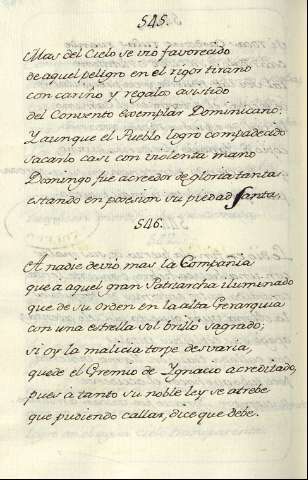 545.
Mas del Cielo se vió favorecido
de aquel peligro en el rigor tirano
con cariño y regalo asistido
del Convento exemplar Dominicano:
Y aunque el Pueblo logro compadecido
sacarlo casi con violenta mano
Domingo fué acreedor de gloria tanta
estando en posesion su piedad santa.
546.
A nadie devio mas la Compania
que a aquel gran Patriarcha iluminado
que de su orden en la alta Gerarquia
con una estrella sol brilló sagrado;
si oy la malicia torpe desvaria,
quede el Gremio de Ygnacio acreditado,
pues à tanto su noble ley se atrebe
que pudiendo callar, dice que debe.